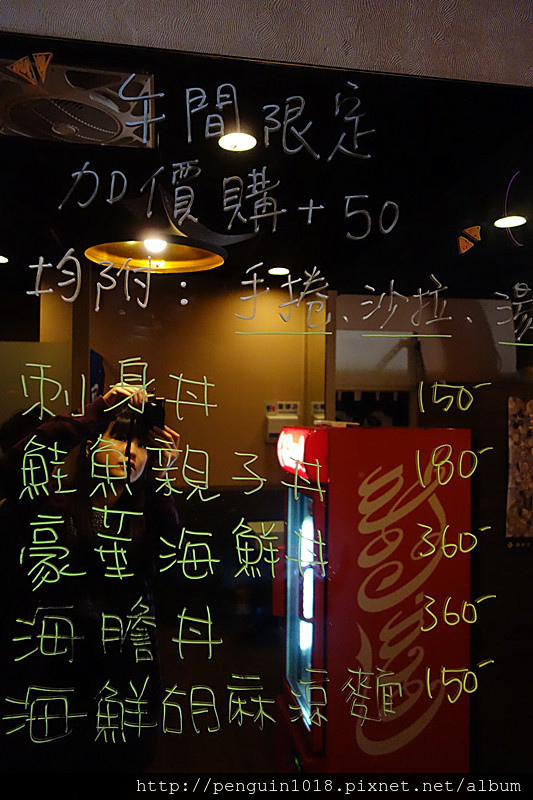 午間限定
加價購+50
均附：手捲、沙拉、湯
刺身丼 150-
鮭魚親子丼 180-
豪華海鮮丼 360-
海膽丼 360-
海鮮胡麻涼麵 150-
http://penguin1018.pixnet.net/album